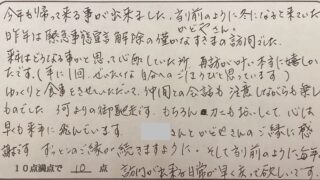 今年も帰って来る事が出来ました。当り前のように冬になると来ていた
かどやさん。
昨年は緊急事態宣言解除の僅かなすきまの訪問でした。
来年はどうなる事かと思って心配していた所 再訪が叶い本当に嬉しかっ
たです。(年に1回、ぜいたくな自分へのごほうびと思っています)
ゆっくりと食事をさせていただいて、仲間との会話も注意しながらも楽し
ものでした 何よりの御馳走です。もちろん カニも おいしくて、心は
早くも来年に飛んでいます。
さんとかどやさんのご縁に感
謝です ずっとのご縁が続きますように・ そして当り前のように毎年
10点満点で 10 点 訪問が出来る日常が早く戻って欲しいです。